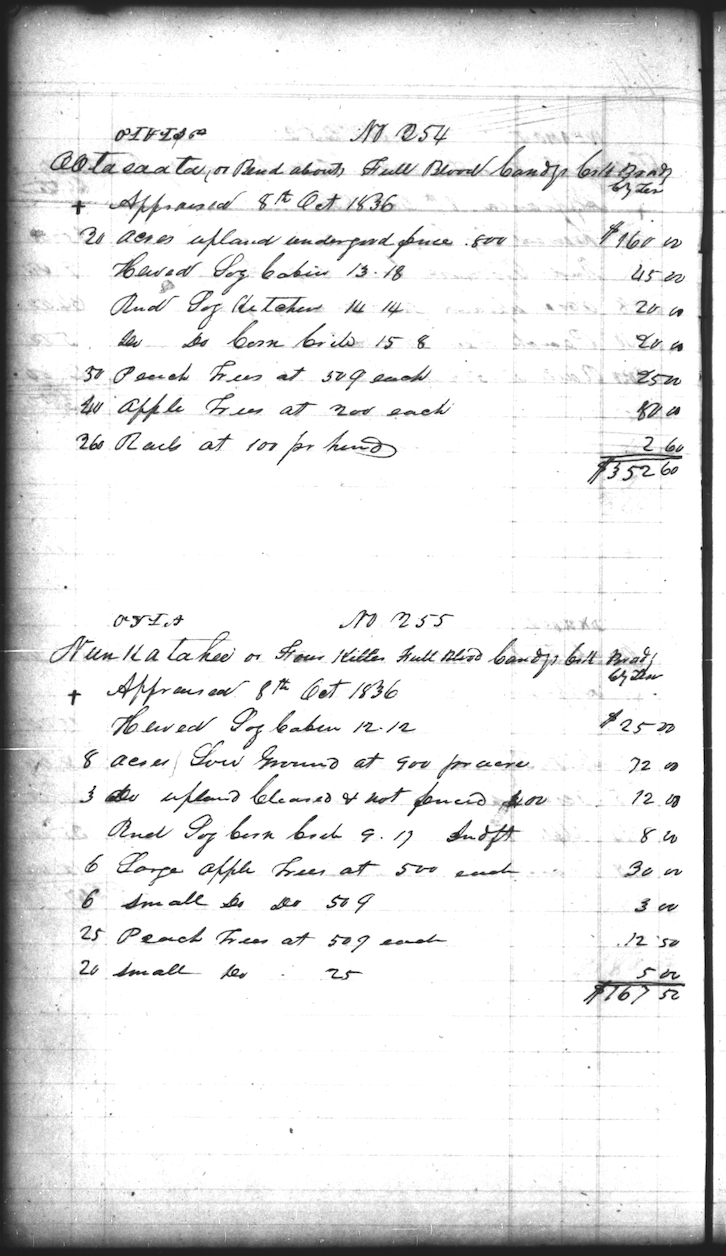 No 254
OOtasaata, or Bend about, Full Blood Candys Crk Brady
Cty Ten
+ Appraised 8th Oct 1836
20 acres upland under good fence .800 $160 00
Hewed Log Cabin 13.18 45 00
Rnd Log Kitchen 14 14 20 00
Do Do Corn Crib 15 8 20 00
50 Peach Trees at 50¢ each 25 00
40 Apple Trees at 200 each 80 00
260 Rails at 100 pr hund 2 60
$352 60
No 255
Nunnatahee or Four Killer Full Blood Candys Crk Brady
Cty Ten
+ Appraised 8th Oct 1836
Hewed Log Cabin 12.12 $25 00
8 acres Low Ground at 900 pr acre 72 00
3 Do upland Cleared & not fenced 400 12 00
Rnd Log Corn Crib 9.17 8 00
6 Large apple Trees at 500 each 30 00
6 small Do Do 50¢ 3 00
25 Peach Trees at 50¢ each 12 50
20 small Do 25 5 00
$167 50